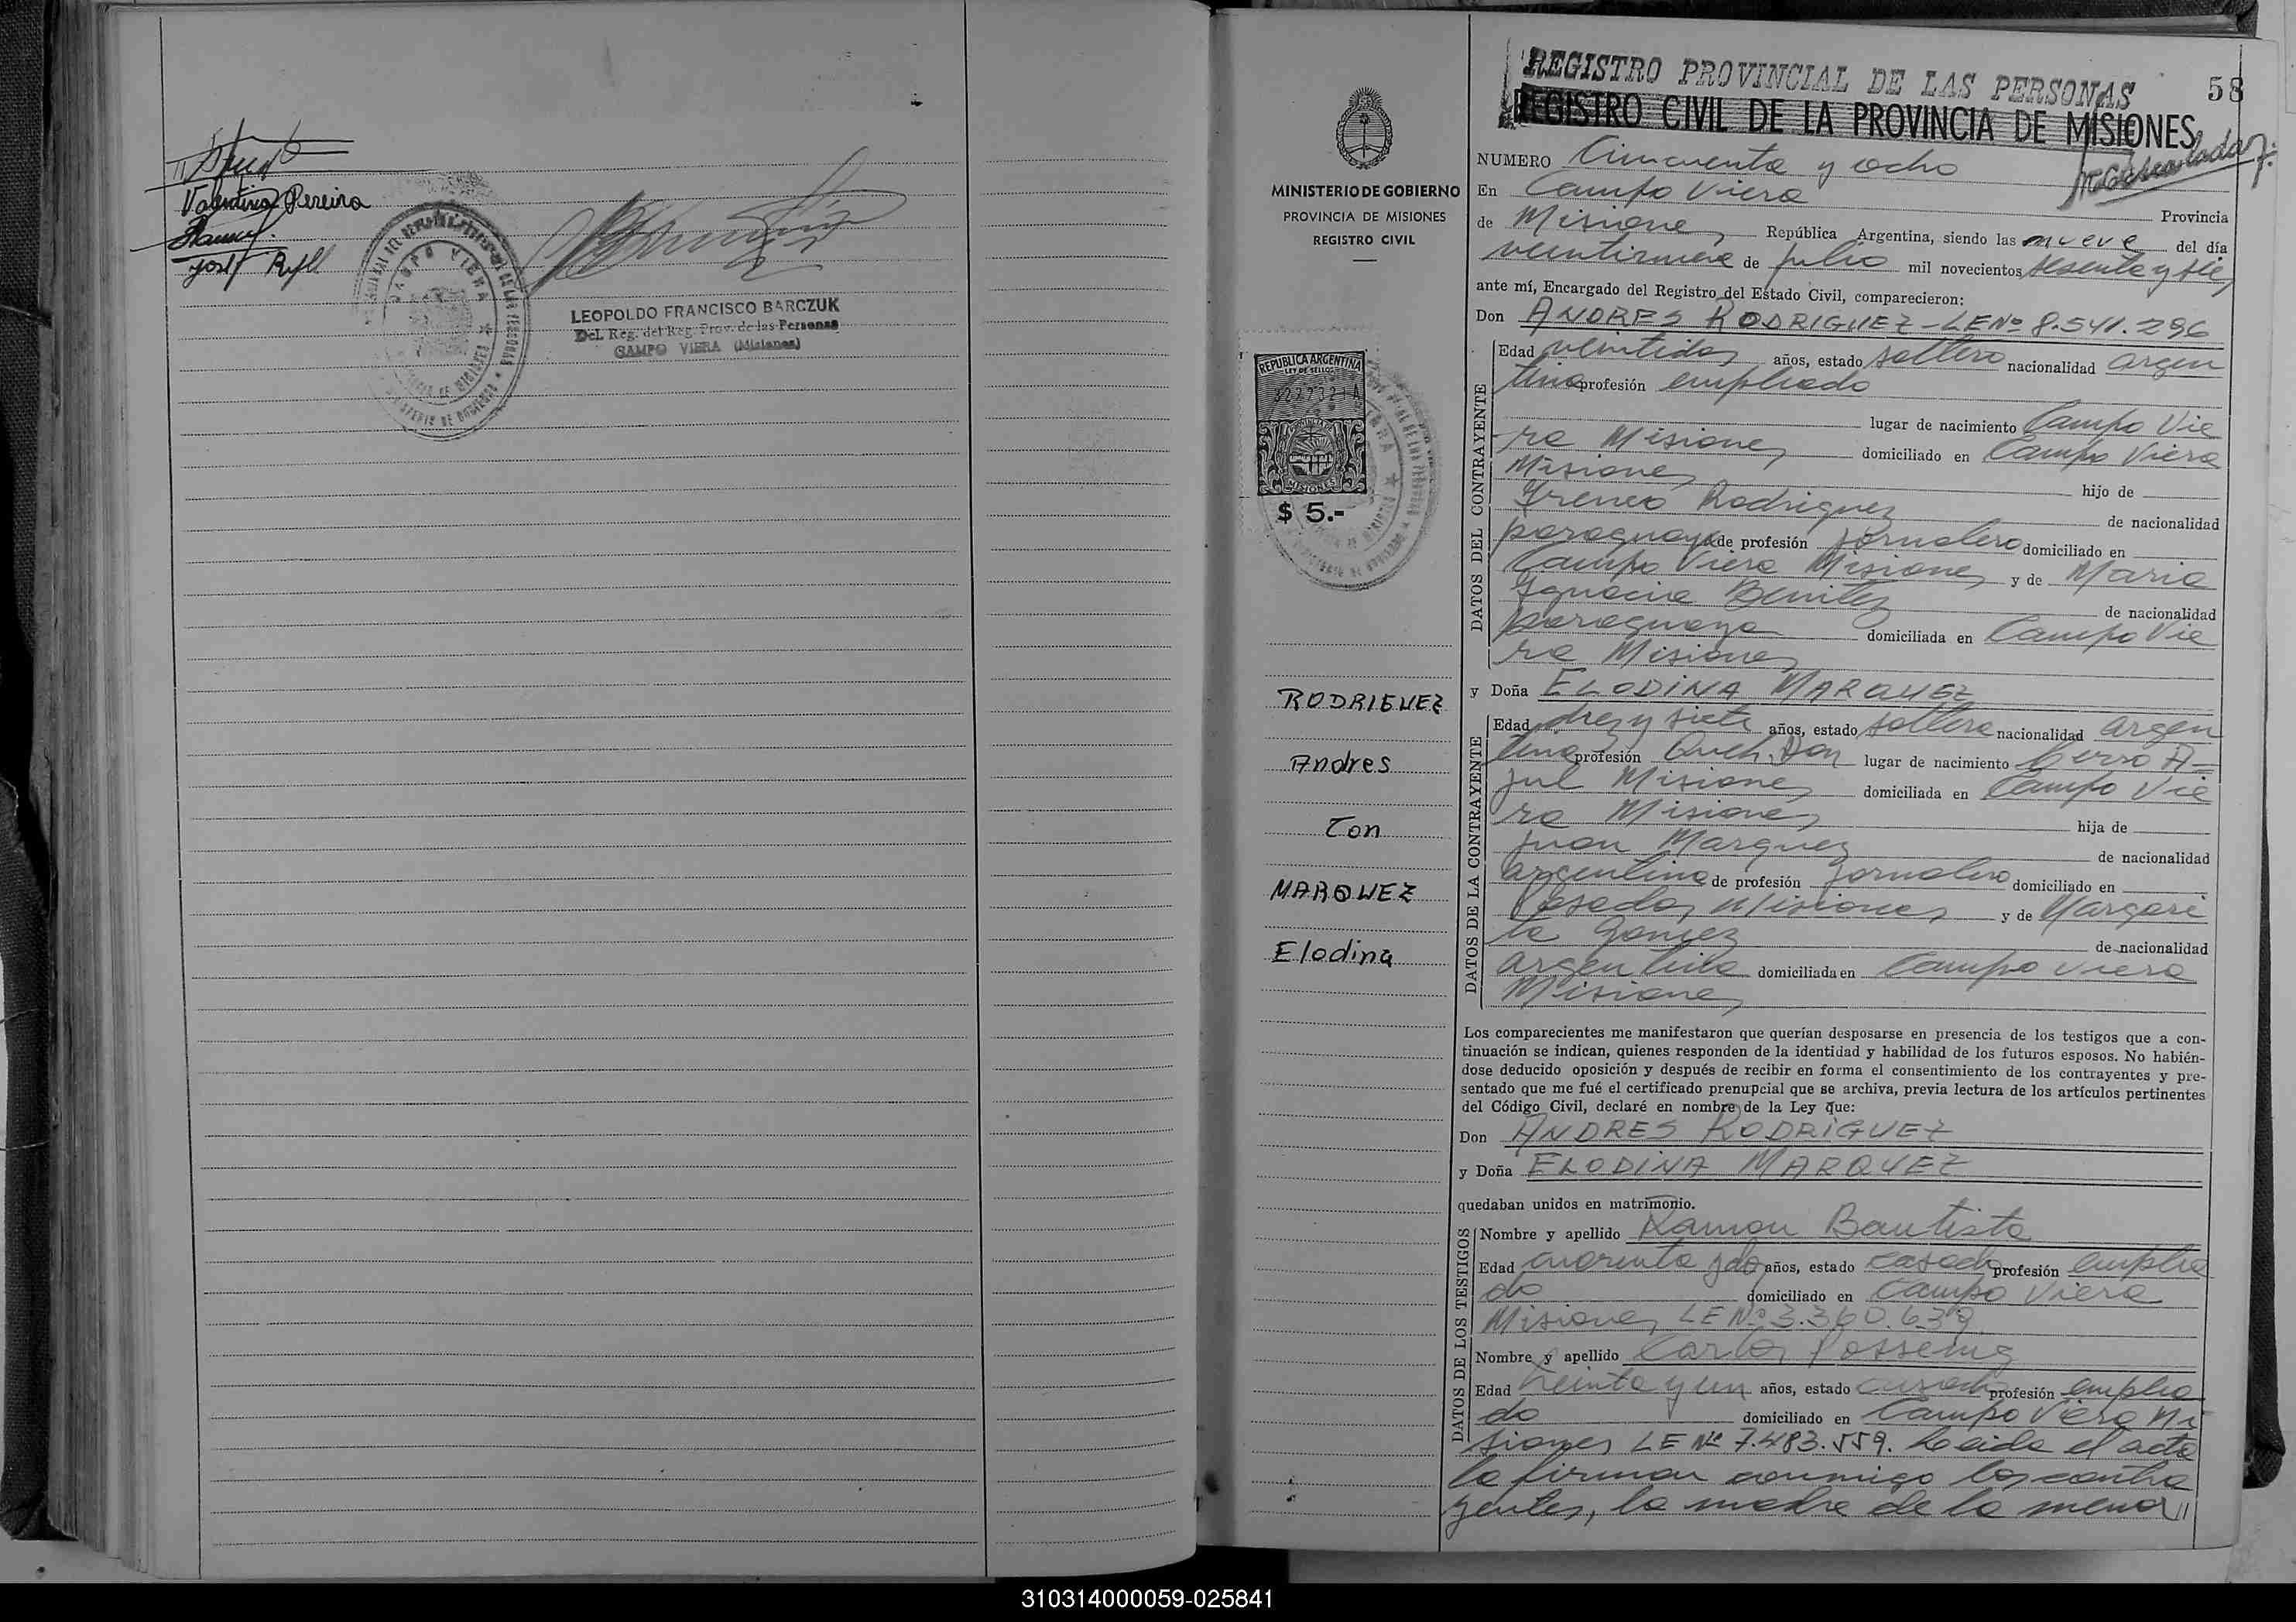 Valentina Pereira
Josef Ryll
CAMPO VIERA
LEOPOLDO FRANCISCO BARCZUK
Del. Reg. del Reg. Prov. de las Personas
CAMPO VIERA (Misiones)
MINISTERIO DE GOBIERNO
PROVINCIA DE MISIONES
REGISTRO CIVIL
REPUBLICA ARGENTINA
LEY DE SELLOS
MISIONES
$ 5.-
RODRIGUEZ
Andres
Con
MARQUEZ
Elodina
REGISTRO PROVINCIAL DE LAS PERSONAS
58
REGISTRO CIVIL DE LA PROVINCIA DE MISIONES
NUMERO Cincuenta y ocho
En Campo Viera
Provincia
de Misiones República Argentina, siendo las nueve del día
veintinueve de Julio mil novecientos sesenta y siete
ante mí, Encargado del Registro del Estado Civil, comparecieron:
Don ANDRES RODRIGUEZ - LE Nº 8.541.296
DATOS DEL CONTRAYENTE
Edad veintidos años, estado soltero nacionalidad argen
tina profesión empleado
lugar de nacimiento Campo Vie
ra Misiones domiciliado en Campo Viera
Misiones hijo de
Yreneo Rodriguez de nacionalidad
paraguaya de profesión jornalero domiciliado en
Campo Viera Misiones y de Maria
Ignacia Benitez de nacionalidad
paraguaya domiciliada en Campo Vie
ra Misiones
y Doña ELODINA MARQUEZ
DATOS DE LA CONTRAYENTE
Edad diez y siete años, estado soltera nacionalidad argen
tina profesión Queh. Dom lugar de nacimiento Cerro A-
zul Misiones domiciliada en Campo Vie
ra Misiones hija de
Juan Marquez de nacionalidad
argentina de profesión jornalero domiciliado en
Posadas Misiones y de Margari
ta Gomez de nacionalidad
argentina domiciliada en Campo Viera
Misiones
Los comparecientes me manifestaron que querían desposarse en presencia de los testigos que a con-
tinuación se indican, quienes responden de la identidad y habilidad de los futuros esposos. No habién-
dose deducido oposición y después de recibir en forma el consentimiento de los contrayentes y pre-
sentado que me fué el certificado prenupcial que se archiva, previa lectura de los artículos pertinentes
del Código Civil, declaré en nombre de la Ley que:
Don ANDRES RODRIGUEZ
y Doña ELODINA MARQUEZ
quedaban unidos en matrimonio.
DATOS DE LOS TESTIGOS
Nombre y apellido Ramon Bautista
Edad cuarenta y dos años, estado casado profesión emplea
do domiciliado en Campo Viera
Misiones LE Nº 3.360.639
Nombre y apellido Carlos
Edad treinta y un años, estado casado profesión emplea
do domiciliado en Campo Viera Mi
siones LE Nº 7.483.559. Leida el acta
la firman conmigo los contra
yentes, la madre de la menor //
310314000059-025841